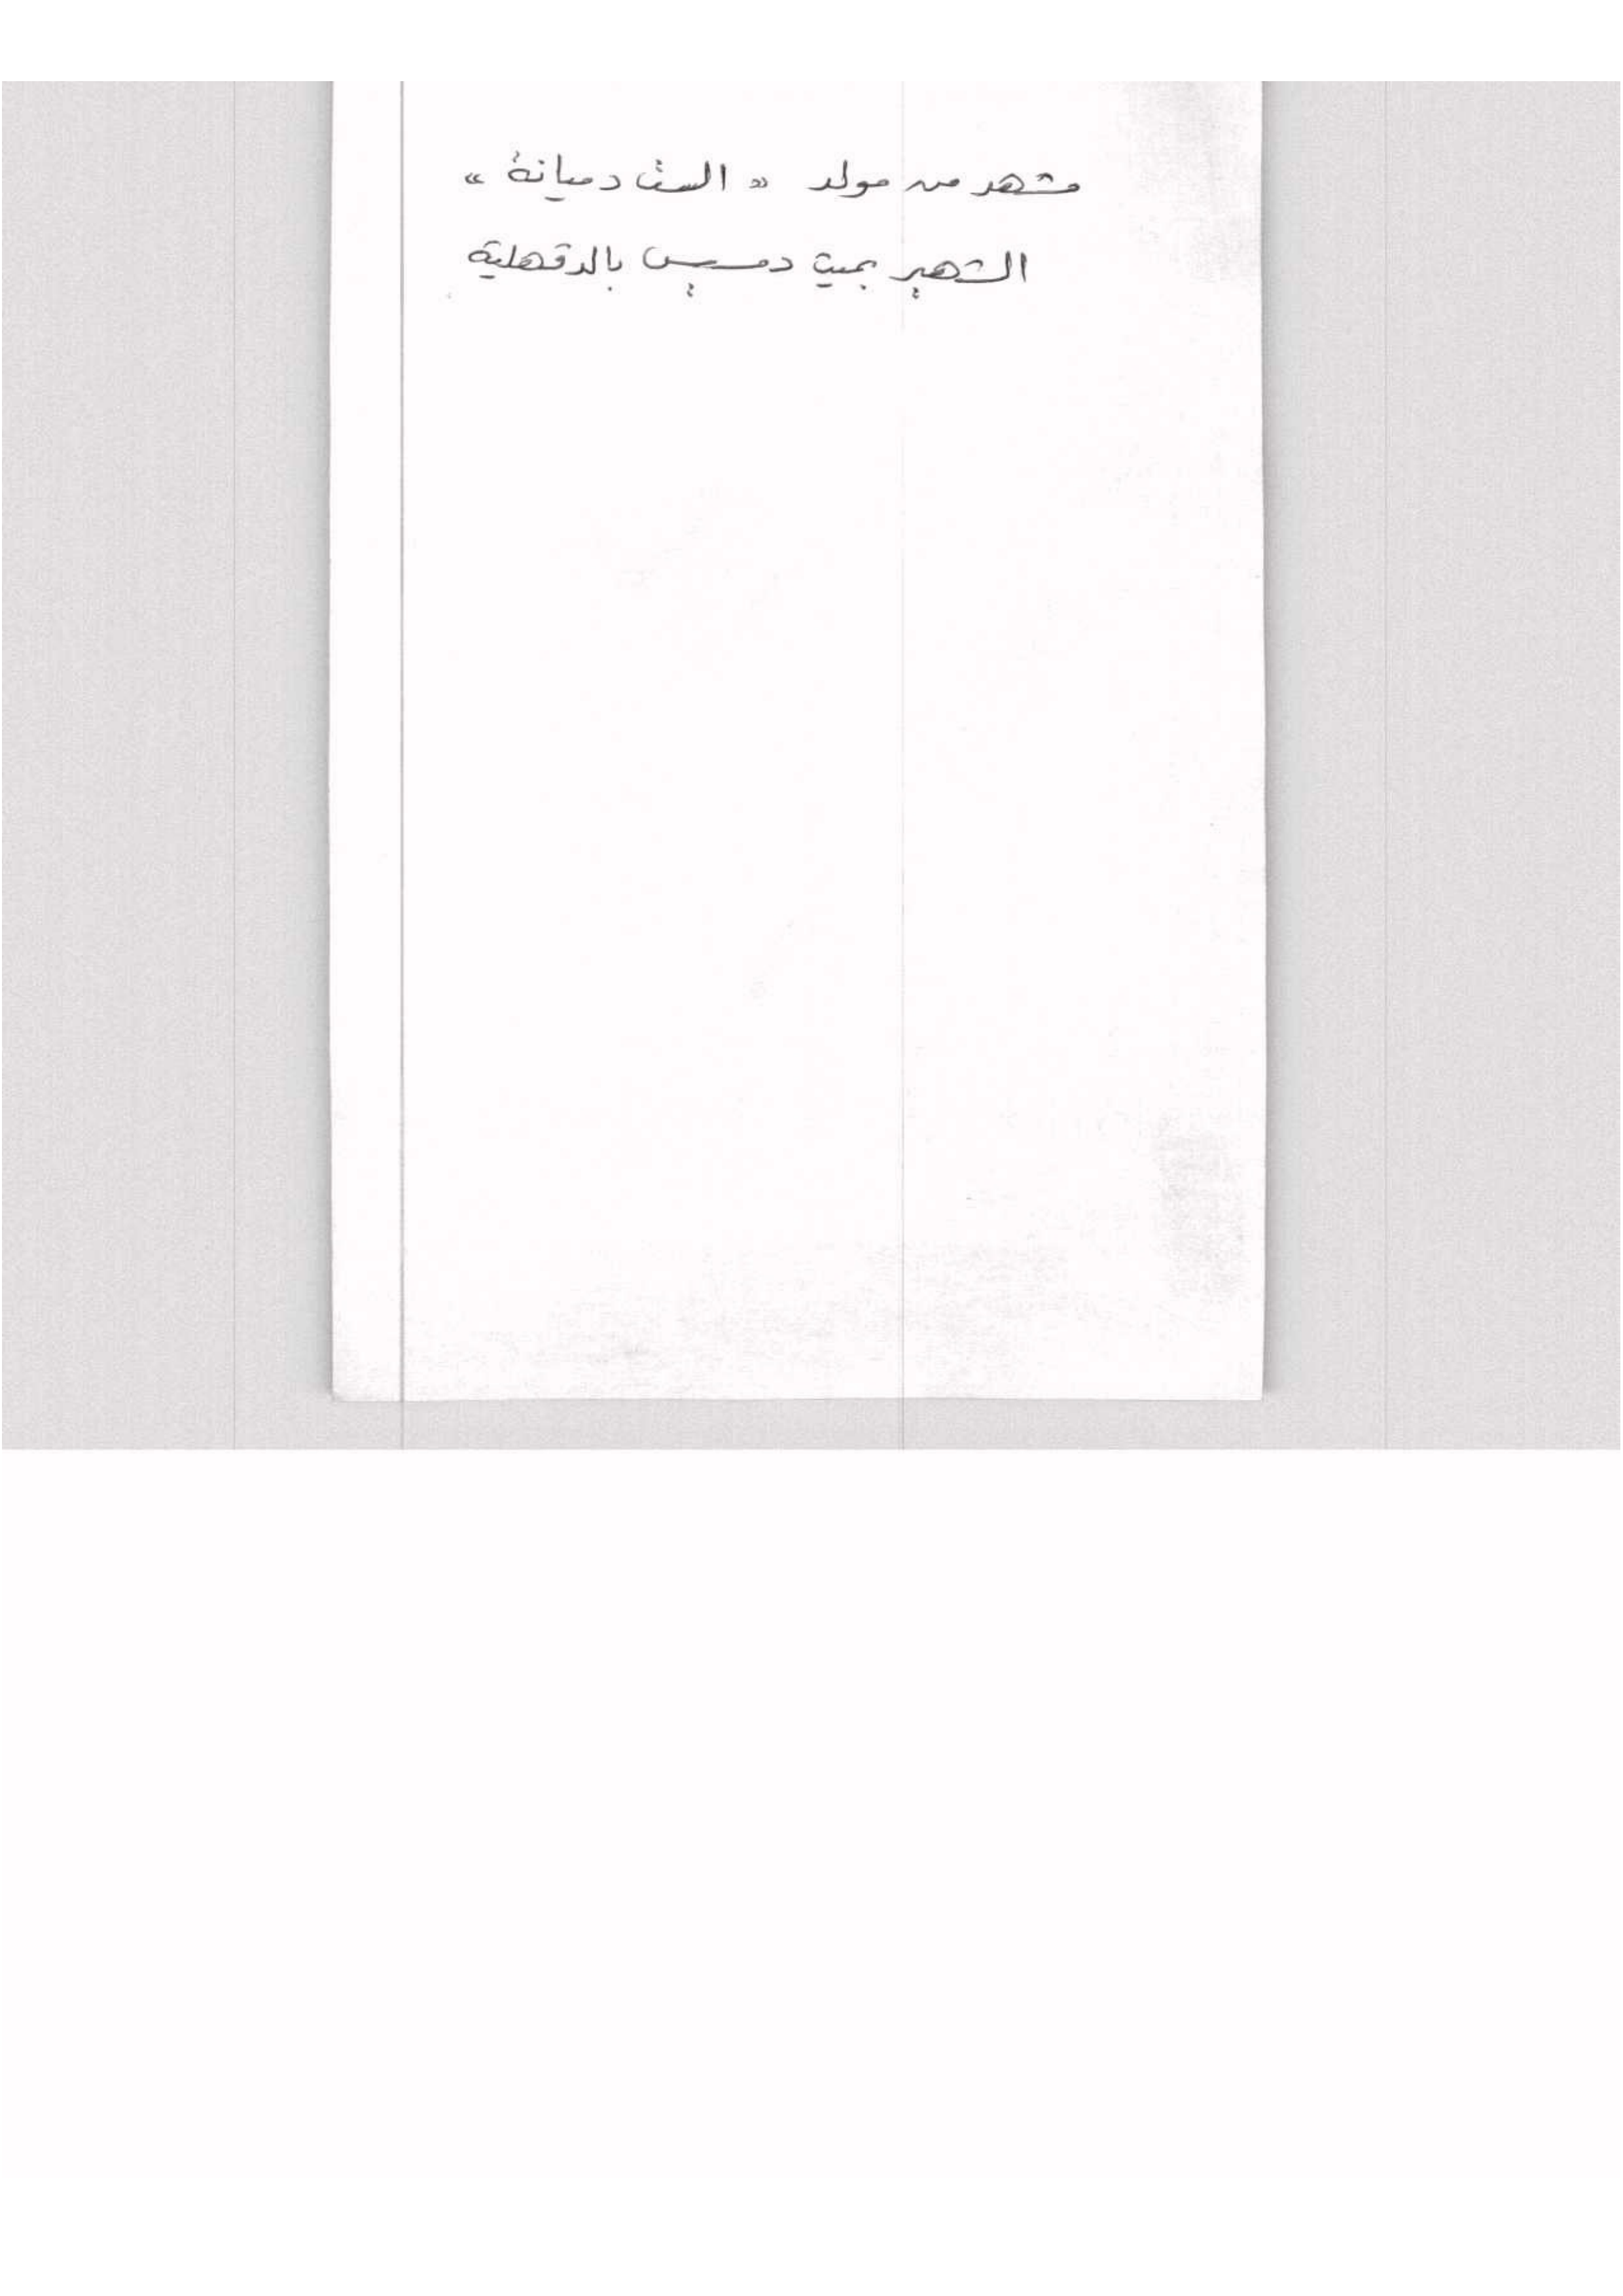 مشهد من مولد « الست دميانة »
الشهير بميت دمسيس بالدقهلية